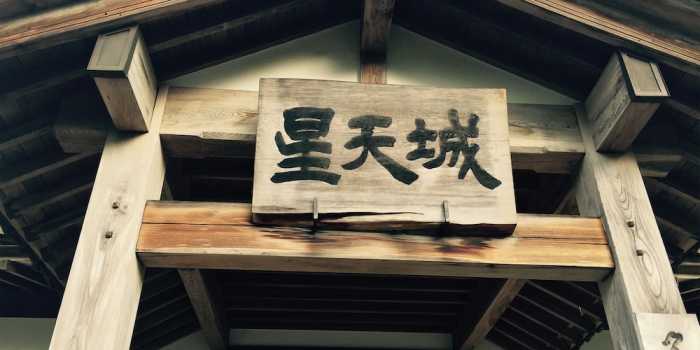 星天城